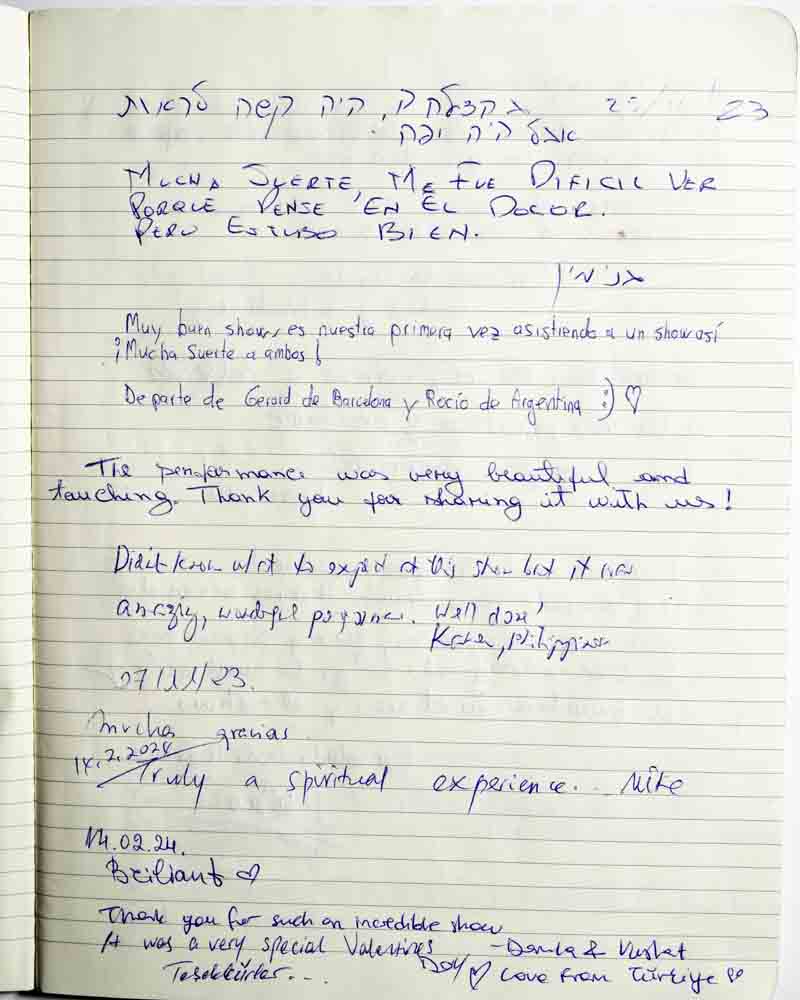 בהצלחה, היה קשה לראות
אבל היה יפה
MUCHA SUERTE, ME FUE DIFICIL VER
PORQUE PENSE EN EL DOLOR.
PERO ESTUBO BIEN.
בנימין
Muy buen show, es nuestra primera vez asistiendo a un show así
¡Mucha Suerte a ambos!
De parte de Gerard de Barcelona y Rocío de Argentina :) ♡
The performance was very beautiful and
touching. Thank you for sharing it with us!
Didn't know what to expect at this show but it was
amazing, wonderful performance. Well done!
Philippines
07/11/23.
Mucha gracias
14.2.2024
Truly a spiritual experience... Mike
14.02.24.
Briliant ♡
Thank you for such an incredible show
It was a very special Valentines Day ♡
- Damla &
Love from Türkiye
Teşekkürler...